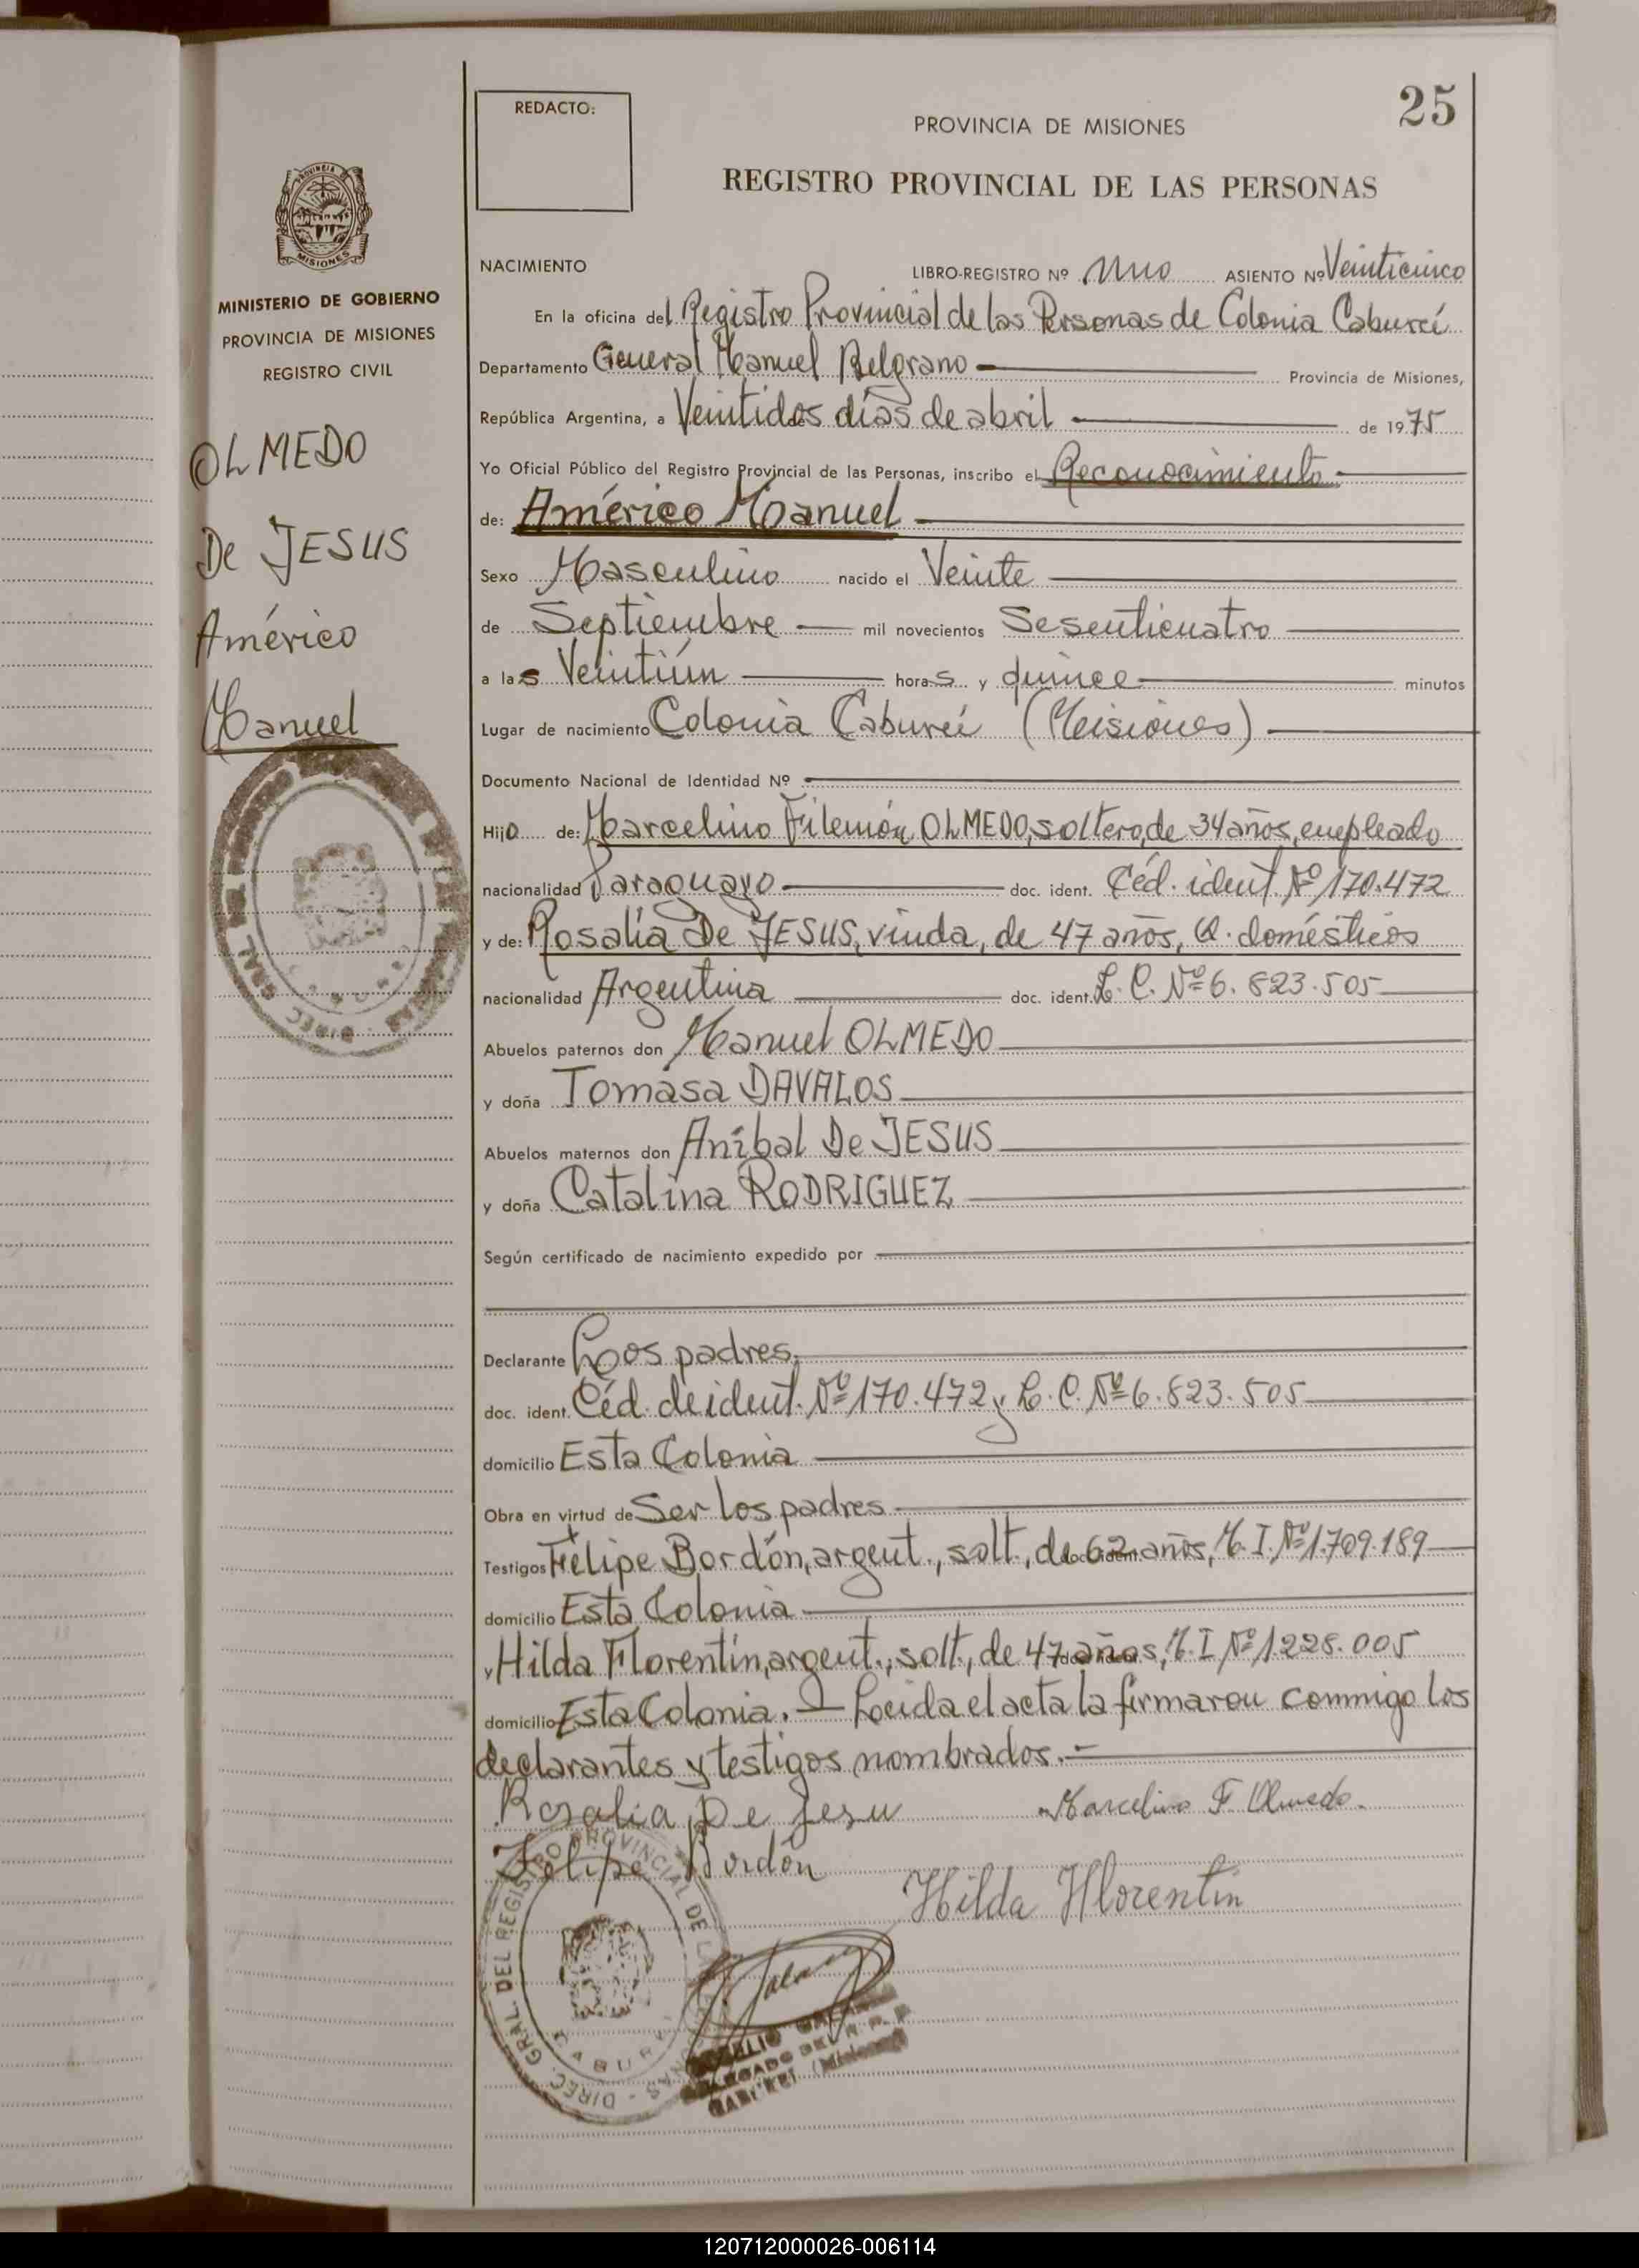 25
REDACTO:
PROVINCIA DE MISIONES
REGISTRO PROVINCIAL DE LAS PERSONAS
MISIONES
MINISTERIO DE GOBIERNO
PROVINCIA DE MISIONES
REGISTRO CIVIL
OLMEDO
De JESUS
Américo
Manuel
NACIMIENTO LIBRO-REGISTRO Nº Uno ASIENTO Nº Veinticinco
En la oficina del Registro Provincial de las Personas de Colonia Cabureí
Departamento General Manuel Belgrano Provincia de Misiones,
República Argentina, a Veintidós días de abril de 1975
Yo Oficial Público del Registro Provincial de las Personas, inscribo el Reconocimiento
de: Américo Manuel
Sexo Masculino nacido el Veinte
de Septiembre mil novecientos Sesenticuatro
a las Veintiún horas y quince minutos
Lugar de nacimiento Colonia Cabureí (Misiones)
Documento Nacional de Identidad Nº
Hijo de: Marcelino Filemón OLMEDO, soltero, de 34 años, empleado
nacionalidad Paraguayo doc. ident. Céd. ident. Nº 170.472
y de: Rosalía De JESUS, viuda, de 47 años, Q. domésticos
nacionalidad Argentina doc. ident. L. C. Nº 6.823.505
Abuelos paternos don Manuel OLMEDO
y doña Tomasa DAVALOS
Abuelos maternos don Aníbal De JESUS
y doña Catalina RODRIGUEZ
Según certificado de nacimiento expedido por
Declarante Los padres.
doc. ident. Céd. de ident. Nº 170.472 y L. C. Nº 6.823.505
domicilio Esta Colonia
Obra en virtud de Ser los padres
Testigos Felipe Bordón, argent., solt., de 62 años, M. I. Nº 1.709.189
domicilio Esta Colonia
y Hilda Florentín, argent., solt., de 47 años, M. I Nº 1228.005
domicilio Esta Colonia. - Leída el acta la firmaron conmigo los
declarantes y testigos nombrados.-
Rosalia De Jesu Marcelino F. Olmedo.
Felipe Bordón
Hilda Florentin
DIREC. GRAL DEL REGISTRO PROVINCIAL DE
120712000026-006114